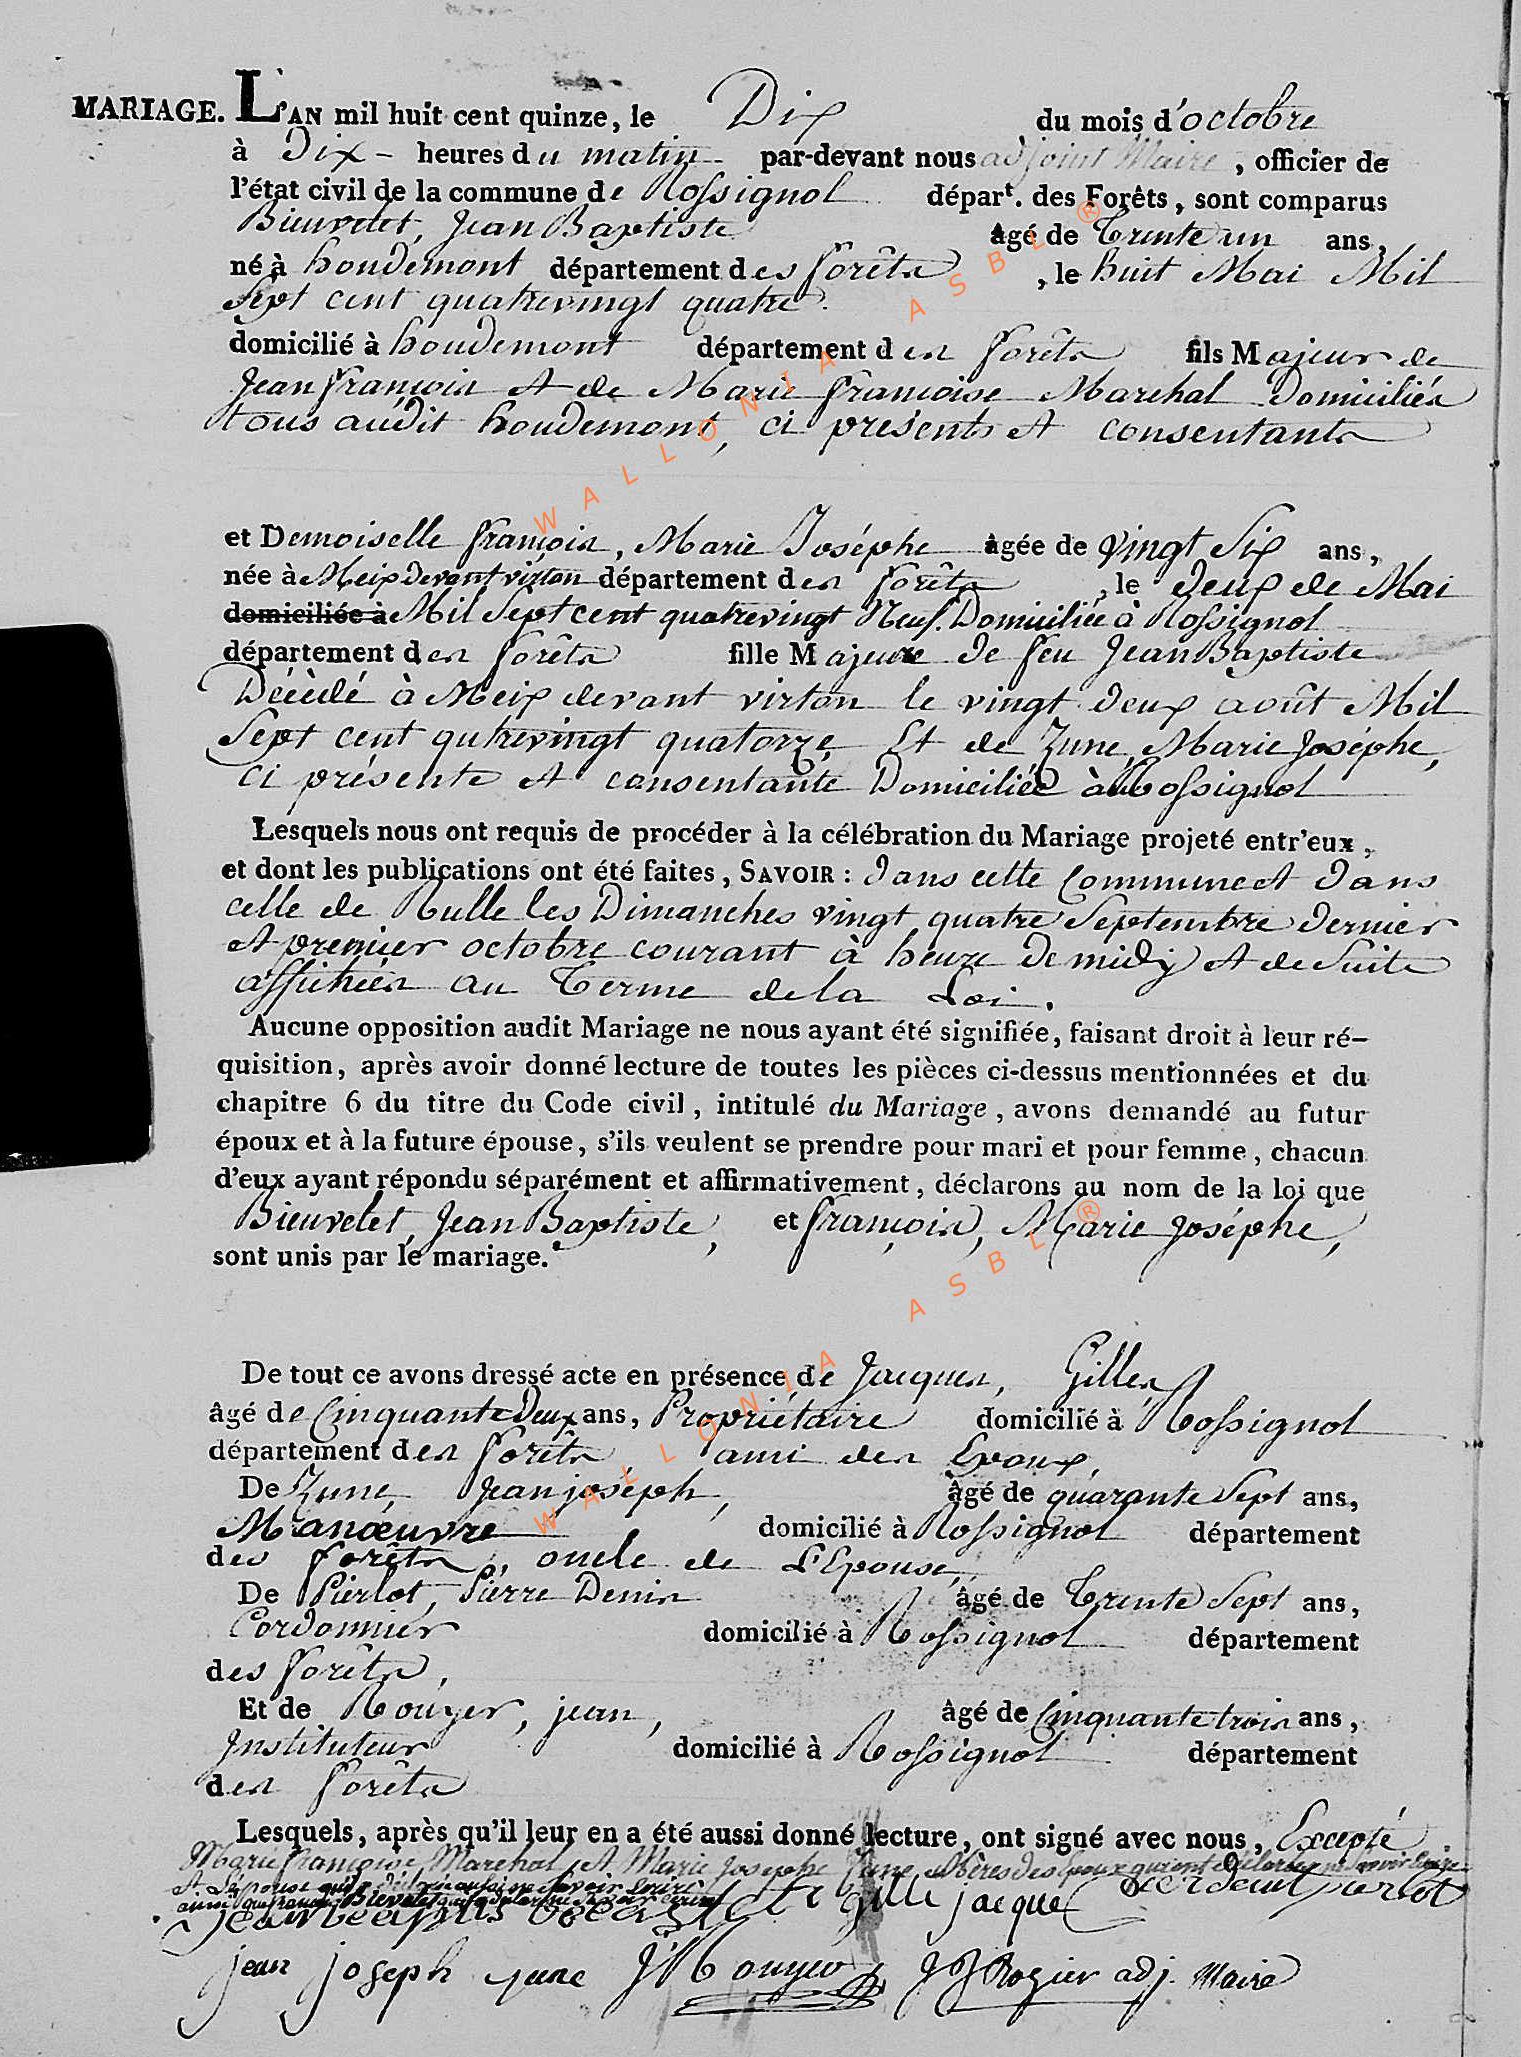 MARIAGE. L'AN mil huit cent quinze, le Dix, du mois d'octobre
à Dix - heures du matin par-devant nous adjoint Maire, officier de
l'état civil de la commune de Rossignol départ. des Forêts, sont comparus
Bieuvelet, Jean Baptiste âgé de Trente un ans,
né à houdemont département des forêts, le huit Mai Mil
Sept cent quatrevingt quatre.
domicilié à houdemont département des forêts fils Majeur de
Jean françois et de Marie françoise Marchal Domiciliés
tous audit houdemont, ci présents et consentants
et Demoiselle françois, Marie Joséphe âgée de vingt Six ans,
née à Meix devant virton département des forêts, le deux de Mai
domiciliée à Mil Sept cent quatrevingt Neuf. Domiciliée à Rossignol
département des forêts fille Majeure de feu Jean Baptiste
Décédé à Meix devant virton le vingt deux août Mil
Sept cent qutrevingt quatorze, Et de Zune, Marie Joséphe,
ci présente et consentante Domiciliée à Rossignol
Lesquels nous ont requis de procéder à la célébration du Mariage projeté entr'eux,
et dont les publications ont été faites, SAVOIR : dans cette Commune et dans
celle de Rulle les Dimanches vingt quatre Septembre dernier
et premier octobre courant à heure de midy et de Suite
affichées au Terme de la Loi.
Aucune opposition audit Mariage ne nous ayant été signifiée, faisant droit à leur ré-
quisition, après avoir donné lecture de toutes les pièces ci-dessus mentionnées et du
chapitre 6 du titre du Code civil, intitulé du Mariage, avons demandé au futur
époux et à la future épouse, s'ils veulent se prendre pour mari et pour femme, chacun
d'eux ayant répondu séparément et affirmativement, déclarons au nom de la loi que
Bieuvelet, Jean Baptiste, et françois, Marie Joséphe,
sont unis par le mariage.
De tout ce avons dressé acte en présence de Jacques, Gilles
âgé de Cinquante Deux ans, Propriétaire domicilié à Rossignol
département des forêts ami des Epoux,
De Zune, Jean joséph, âgé de quarante Sept ans,
Manœuvre domicilié à Rossignol département
des forêts, oncle de L'Epouse,
De Pierlot, Pierre Denis âgé de Trente Sept ans,
Cordonnier domicilié à Rossignol département
des forêts,
Et de Rouyer, jean, âgé de Cinquante trois ans,
Instituteur domicilié à Rossignol département
des forêts
Lesquels, après qu'il leur en a été aussi donné lecture, ont signé avec nous, Excepté
Marie françoise Marchal et Marie Josephe Zune Mères des Epoux qui ont déclaré ne Savoir Ecrire
et L'Epouse qui a dit
Bievelet
gille jacque pierlot
jean joseph zune J Rouyer J J Rozier adj. Maire
WALLONIA ASBL ®
WALLONIA ASBL ®